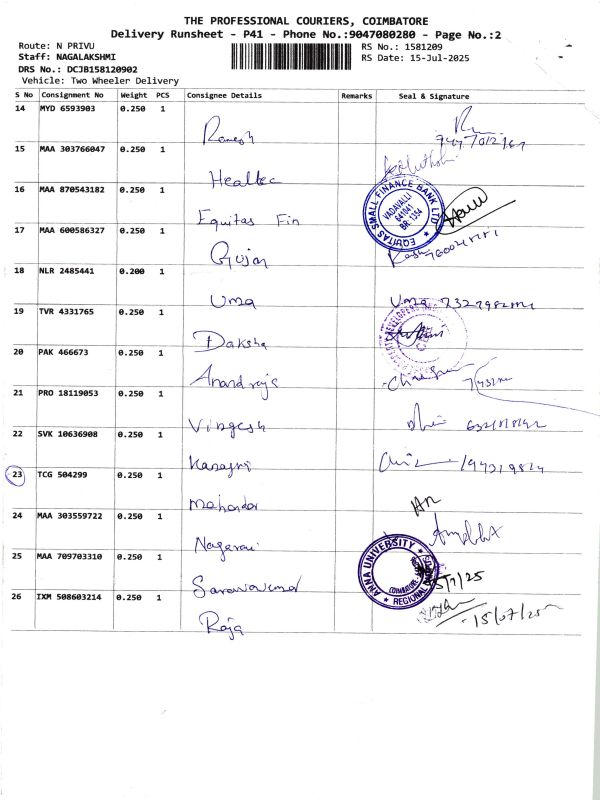 THE PROFESSIONAL COURIERS, COIMBATORE
Delivery Runsheet - P41 - Phone No.:9047080280 - Page No.:2
Route: N PRIVU
RS No.: 1581209
Staff: NAGALAKSHMI
RS Date: 15-Jul-2025
DRS No.: DCJB158120902
Vehicle: Two Wheeler Delivery
S No Consignment No Weight PCS Consignee Details Remarks Seal & Signature
14 MYD 6593903 0.250 1
Ramesh
15 MAA 303766047 0.250 1
Healtec
16 MAA 870543182 0.250 1
Equitas Fin
EQUITAS SMALL FINANCE BANK LTD
VADAVALLI
641041
BR.1354
17 MAA 600586327 0.250 1
Gujan
18 NLR 2485441 0.200 1
Uma Uma
19 TVR 4331765 0.250 1
Daksha
20 PAK 466673 0.250 1
Anandraja
21 PRO 18119053 0.250 1
22 SVK 10636908 0.250 1
23 TCG 504299 0.250 1
24 MAA 303559722 0.250 1
Nagaraj
25 MAA 709703310 0.250 1
ANNA UNIVERSITY
REGIONAL
COIMBATORE
26 IXM 508603214 0.250 1
Raja 15/07/25